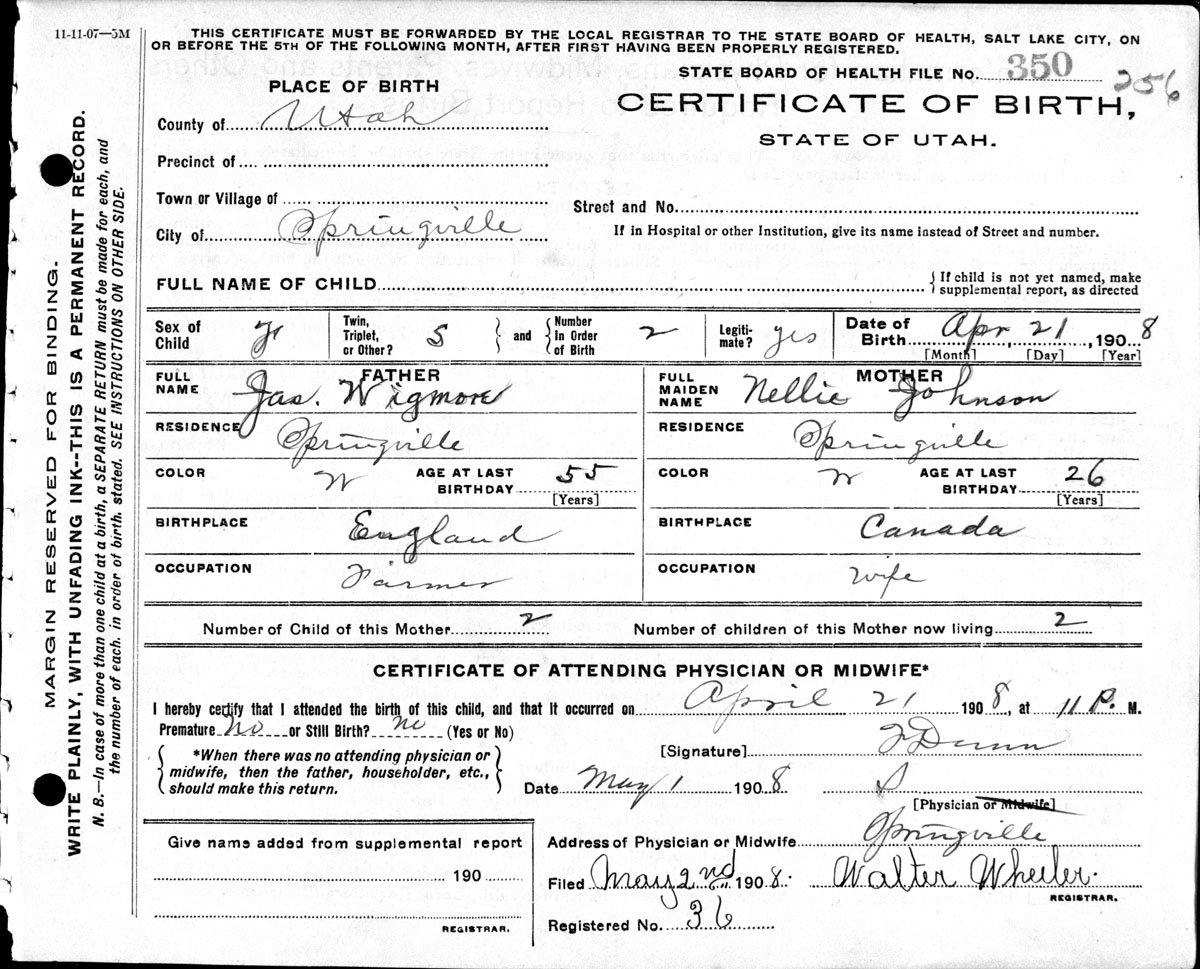 11-11-07—5M
THIS CERTIFICATE MUST BE FORWARDED BY THE LOCAL REGISTRAR TO THE STATE BOARD OF HEALTH, SALT LAKE CITY, ON
OR BEFORE THE 5TH OF THE FOLLOWING MONTH, AFTER FIRST HAVING BEEN PROPERLY REGISTERED.
STATE BOARD OF HEALTH FILE No. 350 256
PLACE OF BIRTH
CERTIFICATE OF BIRTH,
STATE OF UTAH.
County of Utah
Precinct of
Town or Village of
Street and No.
City of Springville
If in Hospital or other Institution, give its name instead of Street and number.
FULL NAME OF CHILD
If child is not yet named, make
supplemental report, as directed
Sex of Child F
Twin, Triplet, or Other? S and Number In Order of Birth 2
Legitimate? yes
Date of Birth Apr 21, 1908
[Month] [Day] [Year]
FATHER
FULL NAME Jas. Wigmore
RESIDENCE Springville
COLOR W AGE AT LAST BIRTHDAY 55
[Years]
BIRTHPLACE England
OCCUPATION Farmer
MOTHER
FULL MAIDEN NAME Nellie Johnson
RESIDENCE Springville
COLOR W AGE AT LAST BIRTHDAY 26
[Years]
BIRTHPLACE Canada
OCCUPATION Wife
Number of Child of this Mother 2 Number of children of this Mother now living 2
CERTIFICATE OF ATTENDING PHYSICIAN OR MIDWIFE*
I hereby certify that I attended the birth of this child, and that it occurred on April 21 1908, at 11 P. M.
Premature No or Still Birth? no (Yes or No)
*When there was no attending physician or
midwife, then the father, householder, etc.,
should make this return.
[Signature] Dunn
Date May 1 1908
[Physician or Midwife]
Give name added from supplemental report
190
REGISTRAR.
Address of Physician or Midwife Springville
Filed May 2nd 1908. Walter Wheeler.
REGISTRAR.
Registered No. 36
MARGIN RESERVED FOR BINDING.
WRITE PLAINLY, WITH UNFADING INK--THIS IS A PERMANENT RECORD.
N. B.—In case of more than one child at a birth, a SEPARATE RETURN must be made for each, and
the number of each, in order of birth, stated. SEE INSTRUCTIONS ON OTHER SIDE.